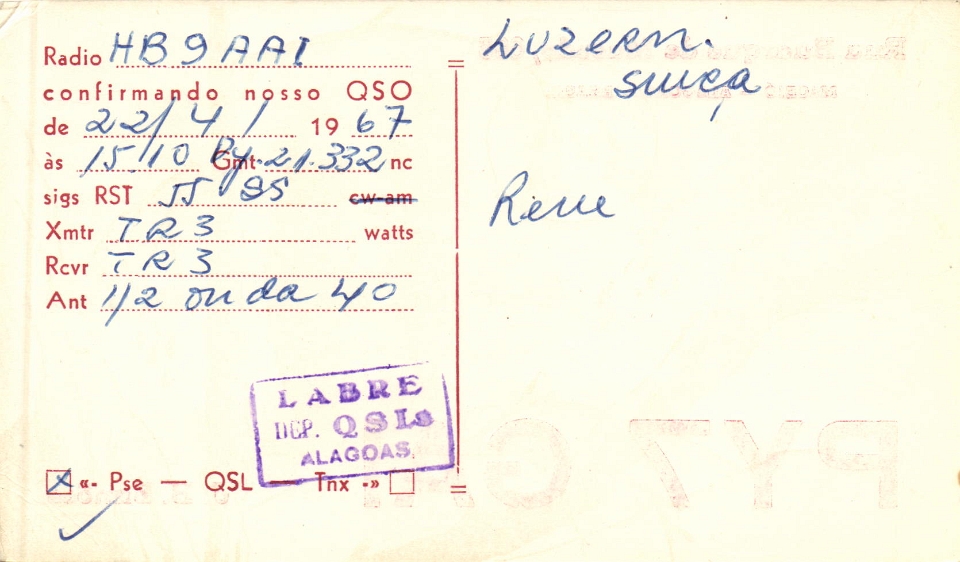 Radio HB9AAI
confirmando nosso QSO
de 22/4/ 1967
às 15/10 Py Gmt. 21.332 nc
sigs RST 55 SS cw-am
Xmtr TR3 watts
Rcvr TR3
Ant 1/2 onda 40
LABRE
DEP. QSLs
ALAGOAS
«- Pse — QSL — Tnx -»
Luzern.
suiça
Rene